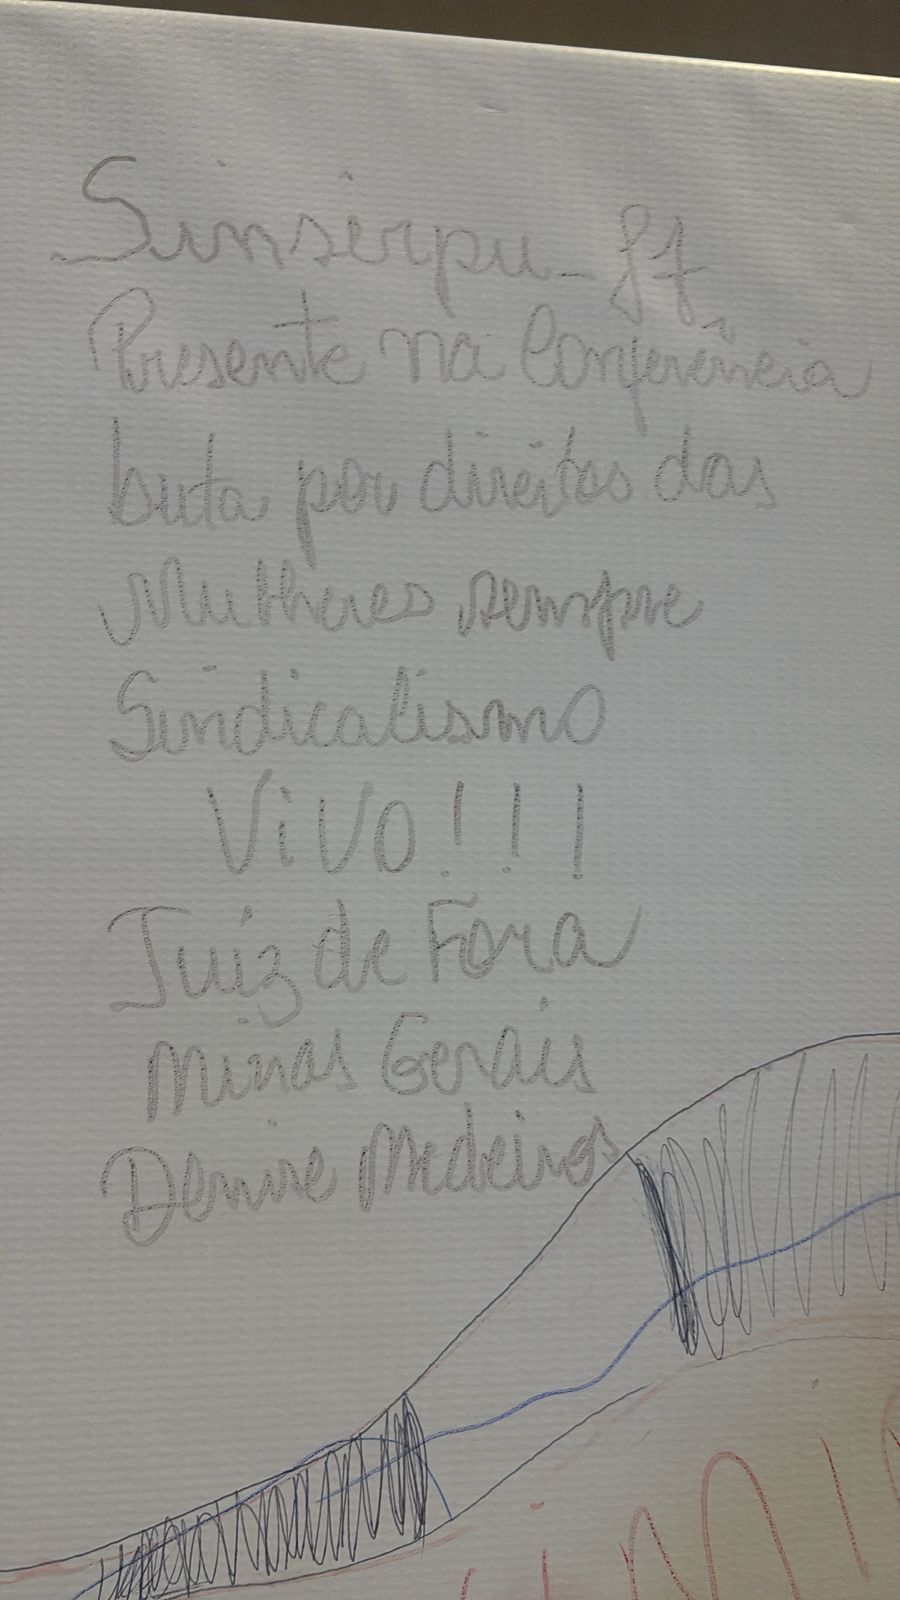 Sinserpu-JF
Presente na Conferência
luta por direitos das
Mulheres sempre
Sindicalismo
Vivo!!!
Juiz de Fora
Minas Gerais
Denise Medeiros